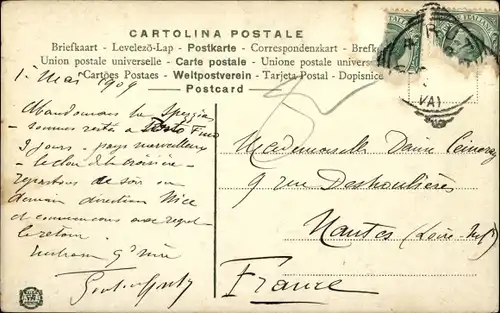 CARTOLINA POSTALE
Briefkaart - Levelezō-Lap - Postkarte - Correspondenzkart - Brefko
Union postale universelle - Carte postale - Unione postale universale
Cartões Postaes - Weltpostverein - Tarjeta Postal - Dopisnice
Postcard
1r Mai 1909
Abandonnons la Spezzia
- sommes restés à Porto Fino
3 jours - pays merveilleux
- le clou de la croisière -
repartons ce soir ou
demain direction Nice
et commençons avec regret
le retour.
Mademoiselle
9 rue Deshoulières
Nantes (Loire Inf)
France